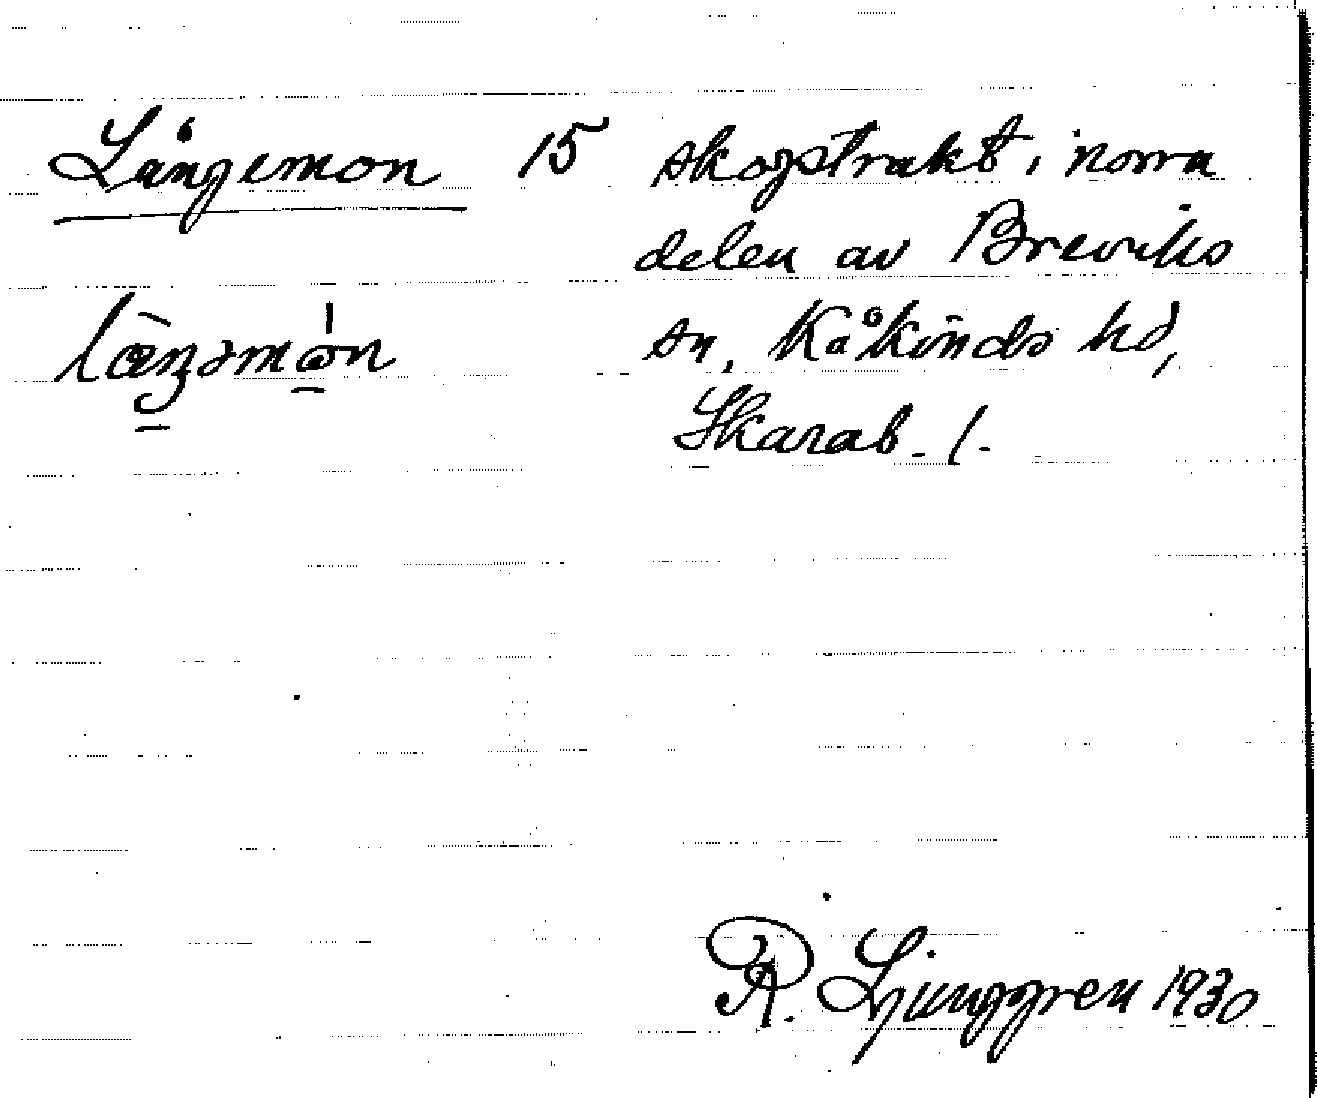 Långemon 15 skogstrakt i norra
delen av Breviks
sn, Kåkinds hd,
Skarab. l.
R. Ljunggren 1930